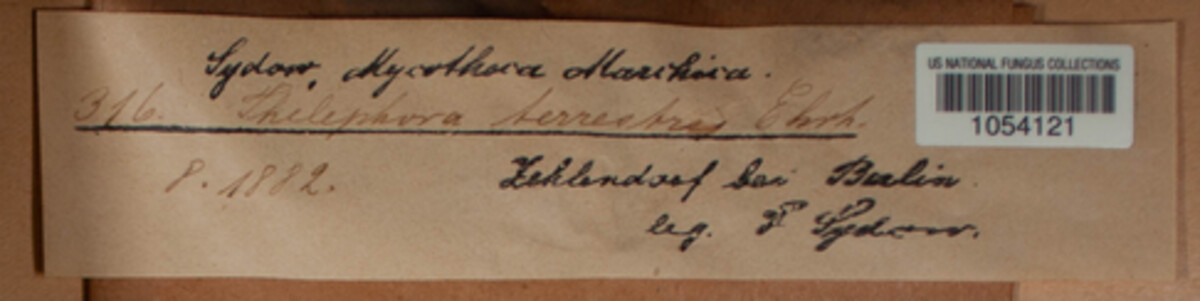 Sydow, Mycotheca Marchica.
316. Thelephora terrestris Ehrh.
8. 1882.
Zehlendorf bei Berlin
leg. P Sydow.
US NATIONAL FUNGUS COLLECTIONS
1054121